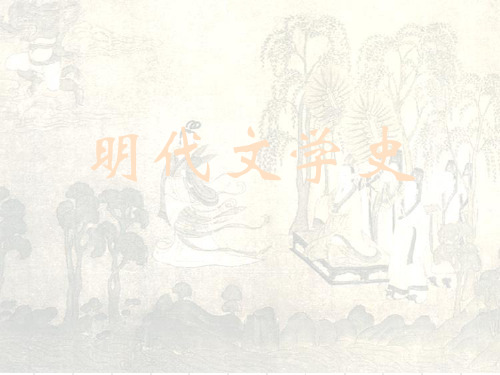 明代文学史